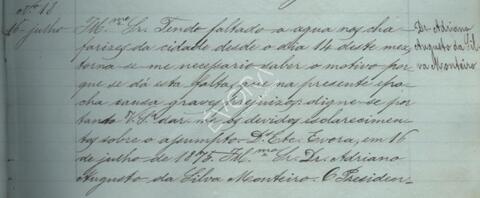 Nº 18
16 julho
Ill.mo Sr. Tendo faltado a agua nos cha
farizes da cidade desde o dia 14 deste mez
torna-se me necepario saber o motivo por
que se dá esta falta, que na presente epo
cha causa graves prejuizos; digne-se por
tanto V. Sª dar-me os devidos esclarecimen
tos sobre o apumpto. D.s Etc. Evora, em 16
de julho de 1875. Ill.mo Sr. Dr. Adriano
Augusto da Silva Monteiro. O Presiden-
Dr. Adriano
Augusto da Sil
va Monteiro
EVORA